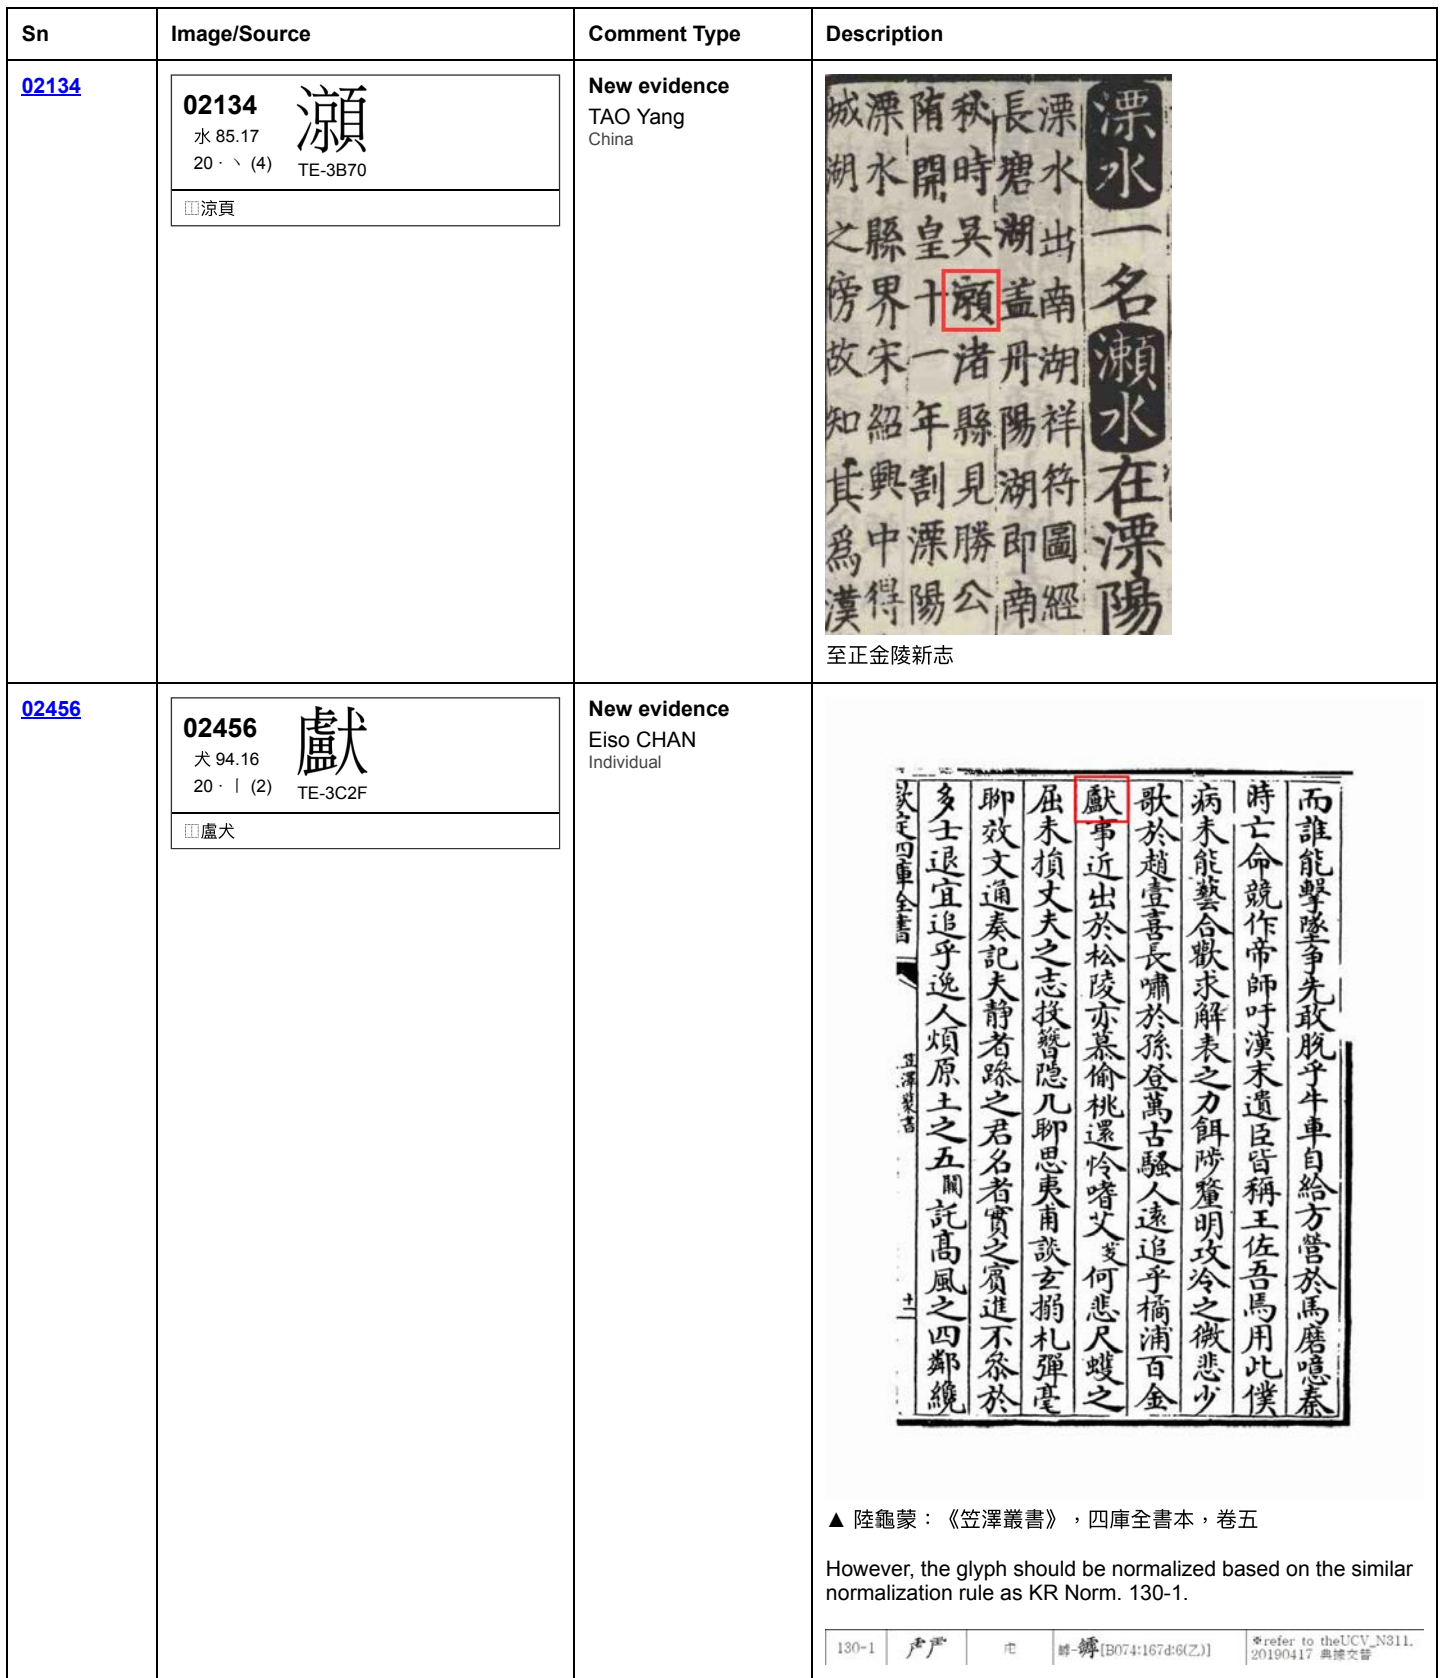 Sn Image/Source Comment Type Description
02134
02134 灝
水 85.17
20 · 丶 (4) TE-3B70
⿰涼頁
New evidence
TAO Yang
China
溧水一名瀬水在溧陽
溧水出南湖祥符圖經
長塘湖盖丹陽湖即南
秋時吴瀬渚縣見勝公
隋開皇十一年割溧陽
溧水縣界宋紹興中得
城湖之傍故知其爲漢
至正金陵新志
02456
02456
犬 94.16
20 · 丨 (2) TE-3C2F
⿰盧犬
New evidence
Eiso CHAN
Individual
而誰能擊隊争先敢脱乎牛車自給方營於馬磨噫秦
時亡命競作帝師吁漢末遺臣皆稱王佐吾焉用此僕
病未能藝合歡求解表之力餌陟釐明攻冷之微悲少
歌於趙壹喜長嘯於孫登萬古騷人遠追乎橘浦百金
事近出於松陵亦慕偷桃還怜嗜艾芰何悲尺蠖之
屈未損丈夫之志投簪隠几聊思夷甫談玄搦札彈毫
聊效文通奏記夫靜者躁之君名者實之賓進不叅於
多士退宜追乎逸人煩原土之五闕託髙風之四鄰纔
欽定四庫全書
笠澤叢書
十二
▲ 陸龜蒙：《笠澤叢書》，四庫全書本，卷五
However, the glyph should be normalized based on the similar
normalization rule as KR Norm. 130-1.
130-1 虍 [B074:167d:6(乙)] ※refer to theUCV_N311.
20190417 典據交替